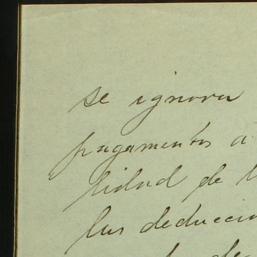 se ignora
pagamentos a
lidad de l
las deduccio
de